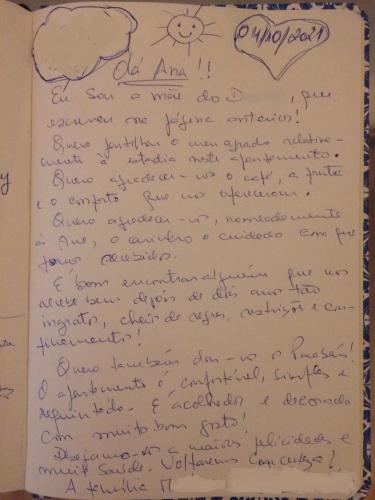 04/10/2021
Olá Ana!!
Eu sou a mãe do D , que
escreveu na página anterior!
Quero partilhar o meu agrado relativa-
mente à estadia neste apartamento.
Quero agradecer-vos o café, a fruta
e o conforto que nos ofereceram.
Quero agradecer-vos, nomeadamente
à Ana, o carinho e cuidado com que
fomos recebidos.
É bom encontrar alguém que nos
recebe bem depois de dois anos tão
ingratos, cheios de regras, restrições e con-
finamentos!
Quero também dar-vos os Parabéns!
O apartamento é confortável, simples e
requintado. É acolhedor e decorado
com muito bom gosto!
Desejamo-vos a maiores felicidades e
muita saúde. Voltaremos com certeza!
A família M